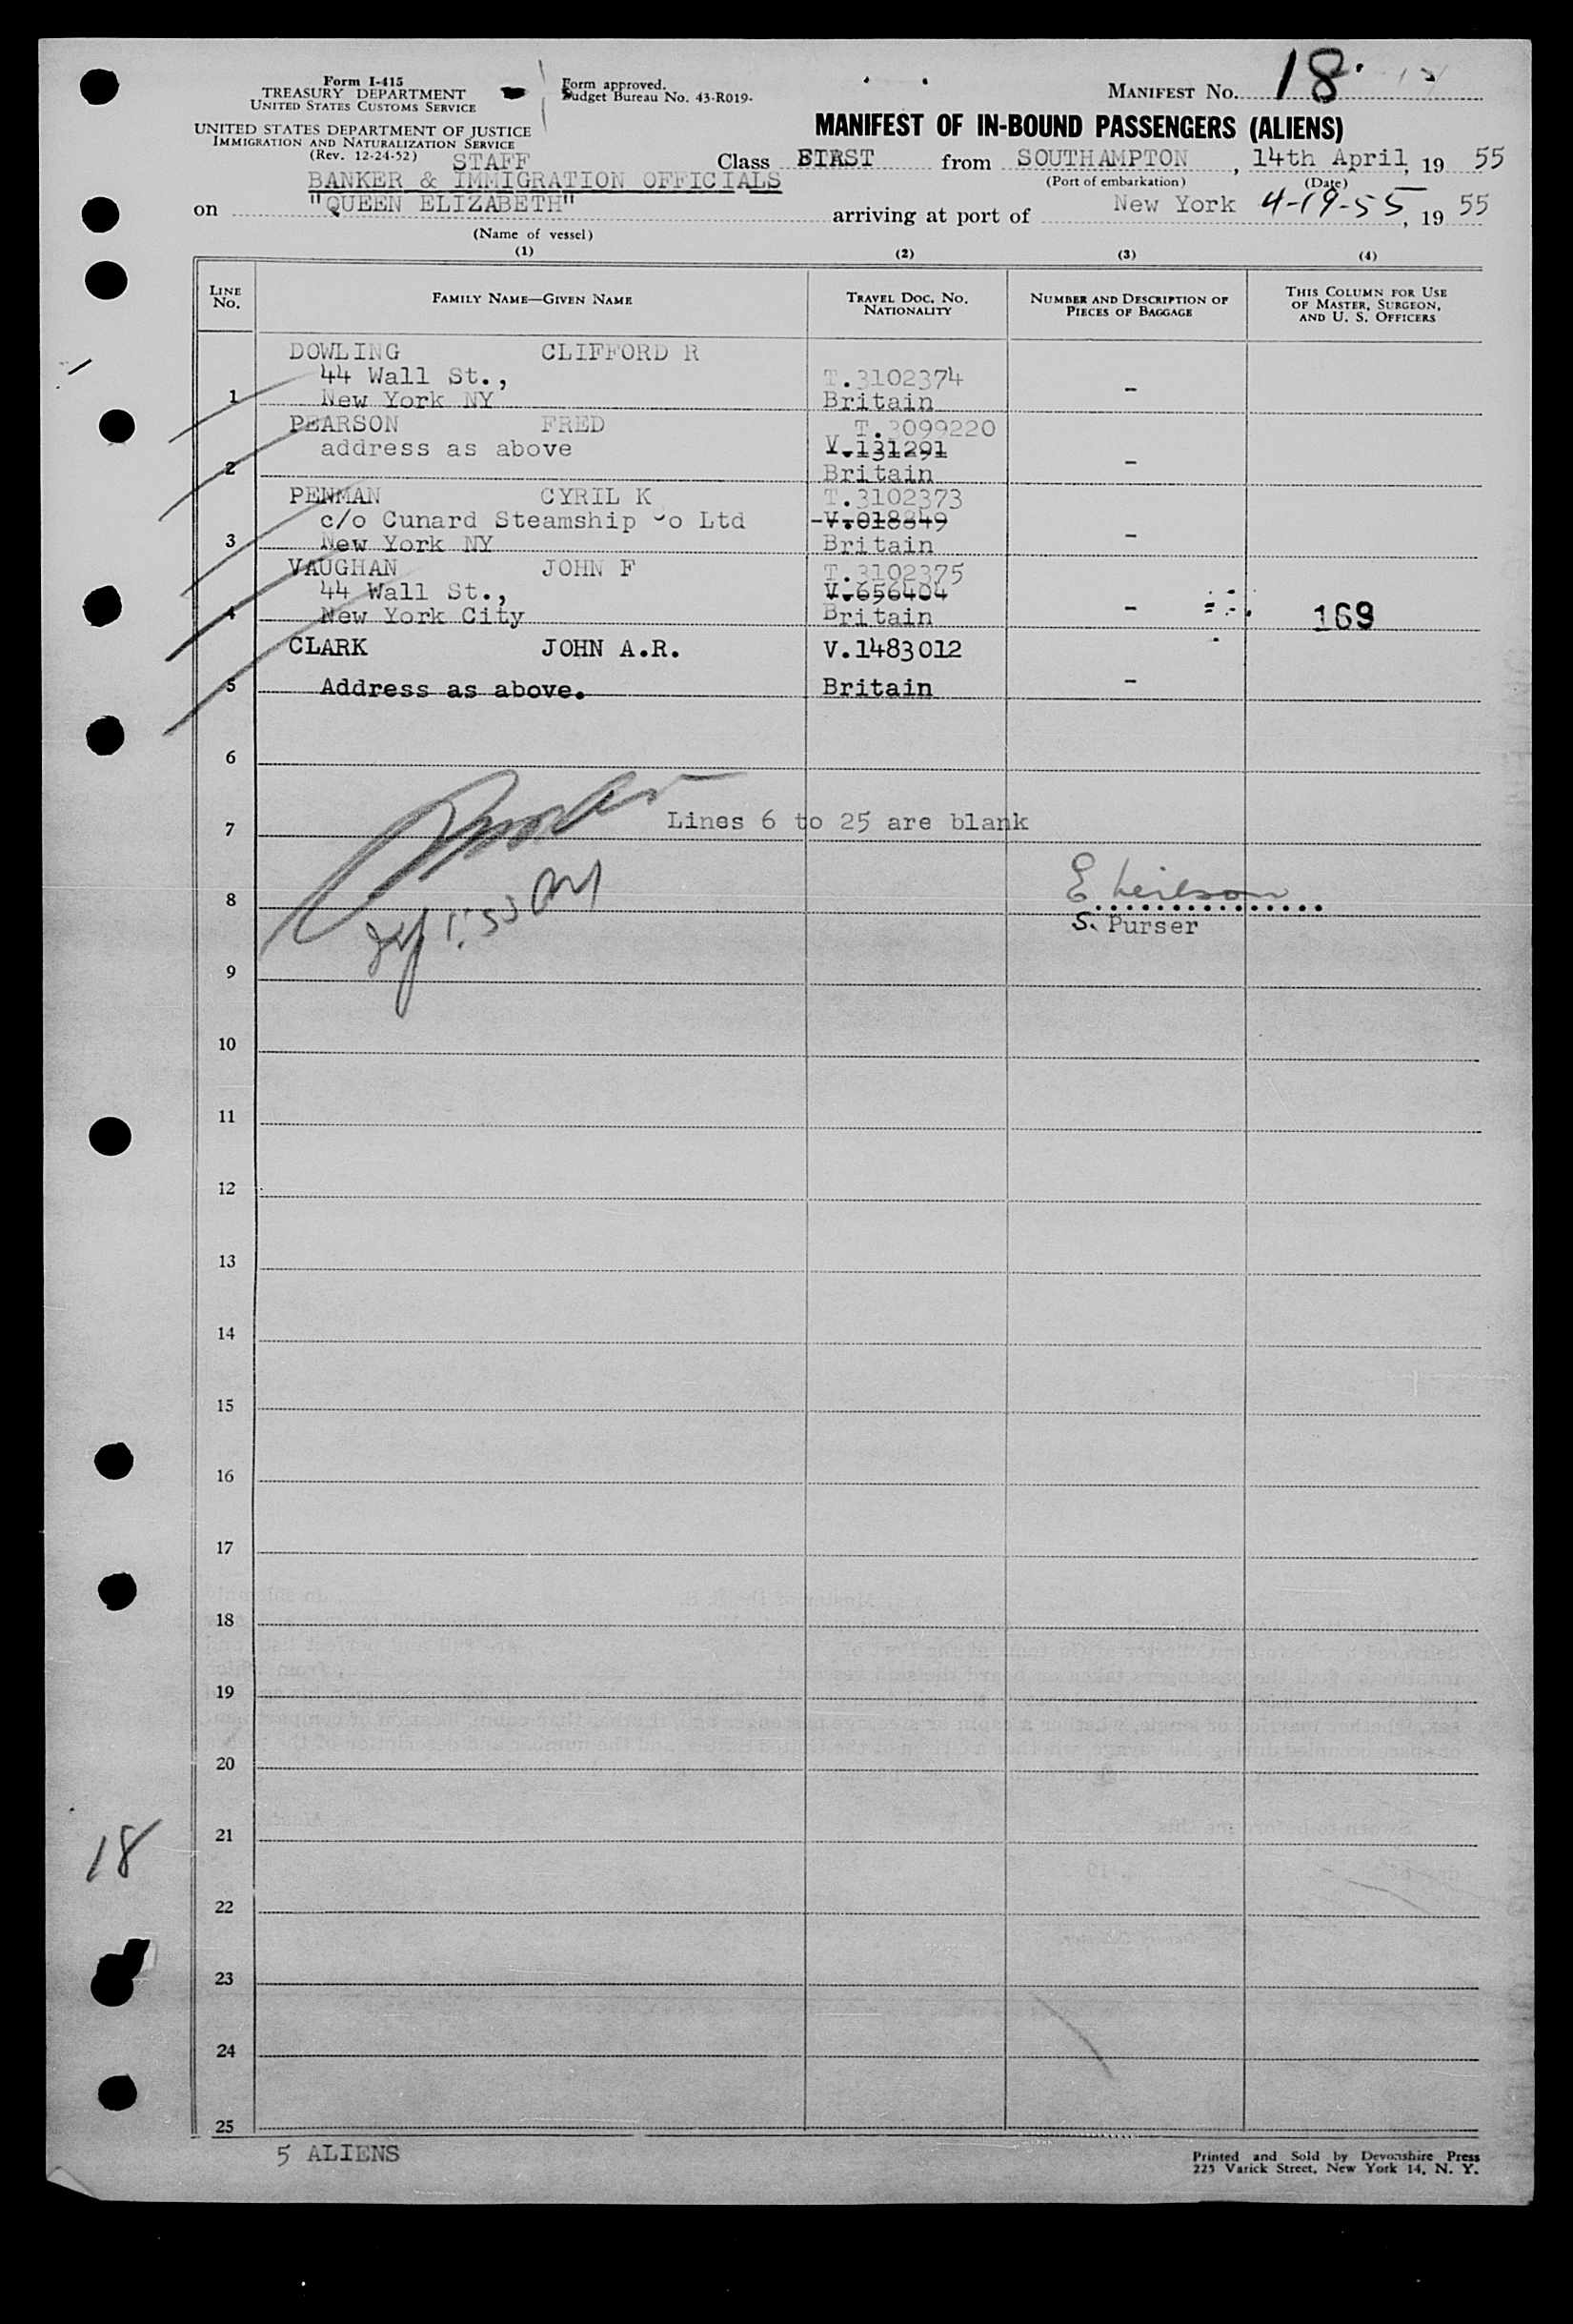 Form I-415
TREASURY DEPARTMENT
UNITED STATES CUSTOMS SERVICE
Form approved.
Budget Bureau No. 43-R019-
MANIFEST NO. 18
UNITED STATES DEPARTMENT OF JUSTICE
IMMIGRATION AND NATURALIZATION SERVICE
(Rev. 12-24-52)
MANIFEST OF IN-BOUND PASSENGERS (ALIENS)
STAFF
Class FIRST from SOUTHAMPTON, 14th April, 19 55
BANKER & IMMIGRATION OFFICIALS
(Port of embarkation) (Date)
on "QUEEN ELIZABETH" arriving at port of New York 4-19-55, 19 55
(Name of vessel)
(1) (2) (3) (4)
LINE NO. FAMILY NAME—GIVEN NAME TRAVEL DOC. NO. NATIONALITY NUMBER AND DESCRIPTION OF PIECES OF BAGGAGE THIS COLUMN FOR USE OF MASTER, SURGEON, AND U. S. OFFICERS
DOWLING CLIFFORD R
44 Wall St., T.3102374
1 New York NY Britain -
PEARSON FRED T.3099220
address as above V.131291
2 Britain -
PENMAN CYRIL K T.3102373
c/o Cunard Steamship Co Ltd V.018849
3 New York NY Britain -
VAUGHAN JOHN F T.3102375
44 Wall St., V.656404
4 New York City Britain - 169
CLARK JOHN A.R. V.1483012
5 Address as above. Britain -
6
7 Lines 6 to 25 are blank
8
S. Purser
9
10
11
12
13
14
15
16
17
18
19
20
21
18
22
23
24
25
5 ALIENS
Printed and Sold by Devonshire Press
225 Varick Street, New York 14, N. Y.